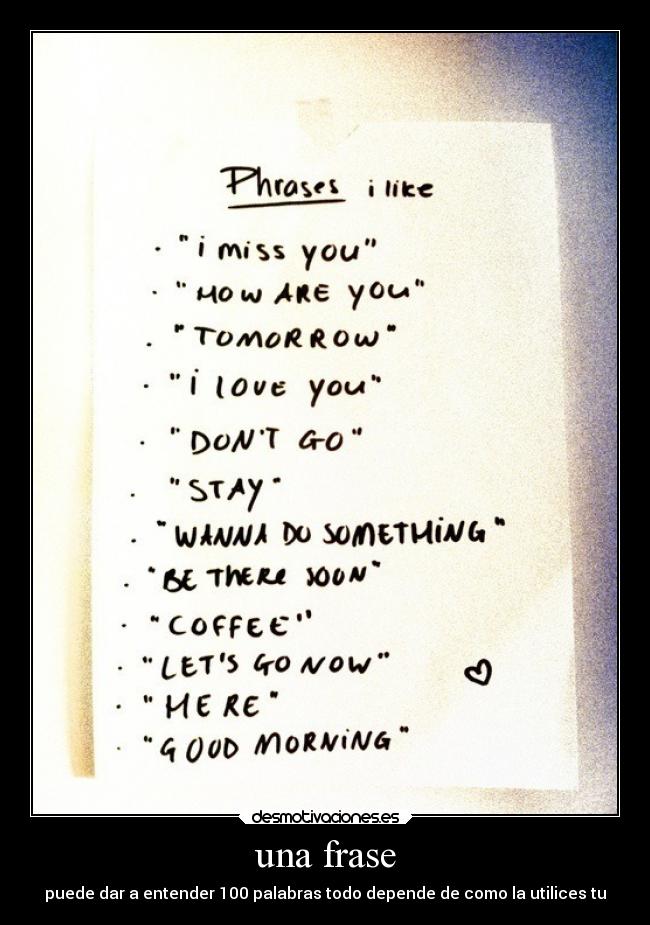 Phrases i like
· "i miss you"
· "HOW ARE YOU"
· "TOMORROW"
· "i LOVE YOU"
· "DON'T GO"
· "STAY"
· "WANNA DO SOMETHING"
· "BE THERE SOON"
· "COFFEE"
· "LET'S GO NOW"
· "HERE"
· "GOOD MORNING"
desmotivaciones.es
una frase
puede dar a entender 100 palabras todo depende de como la utilices tu